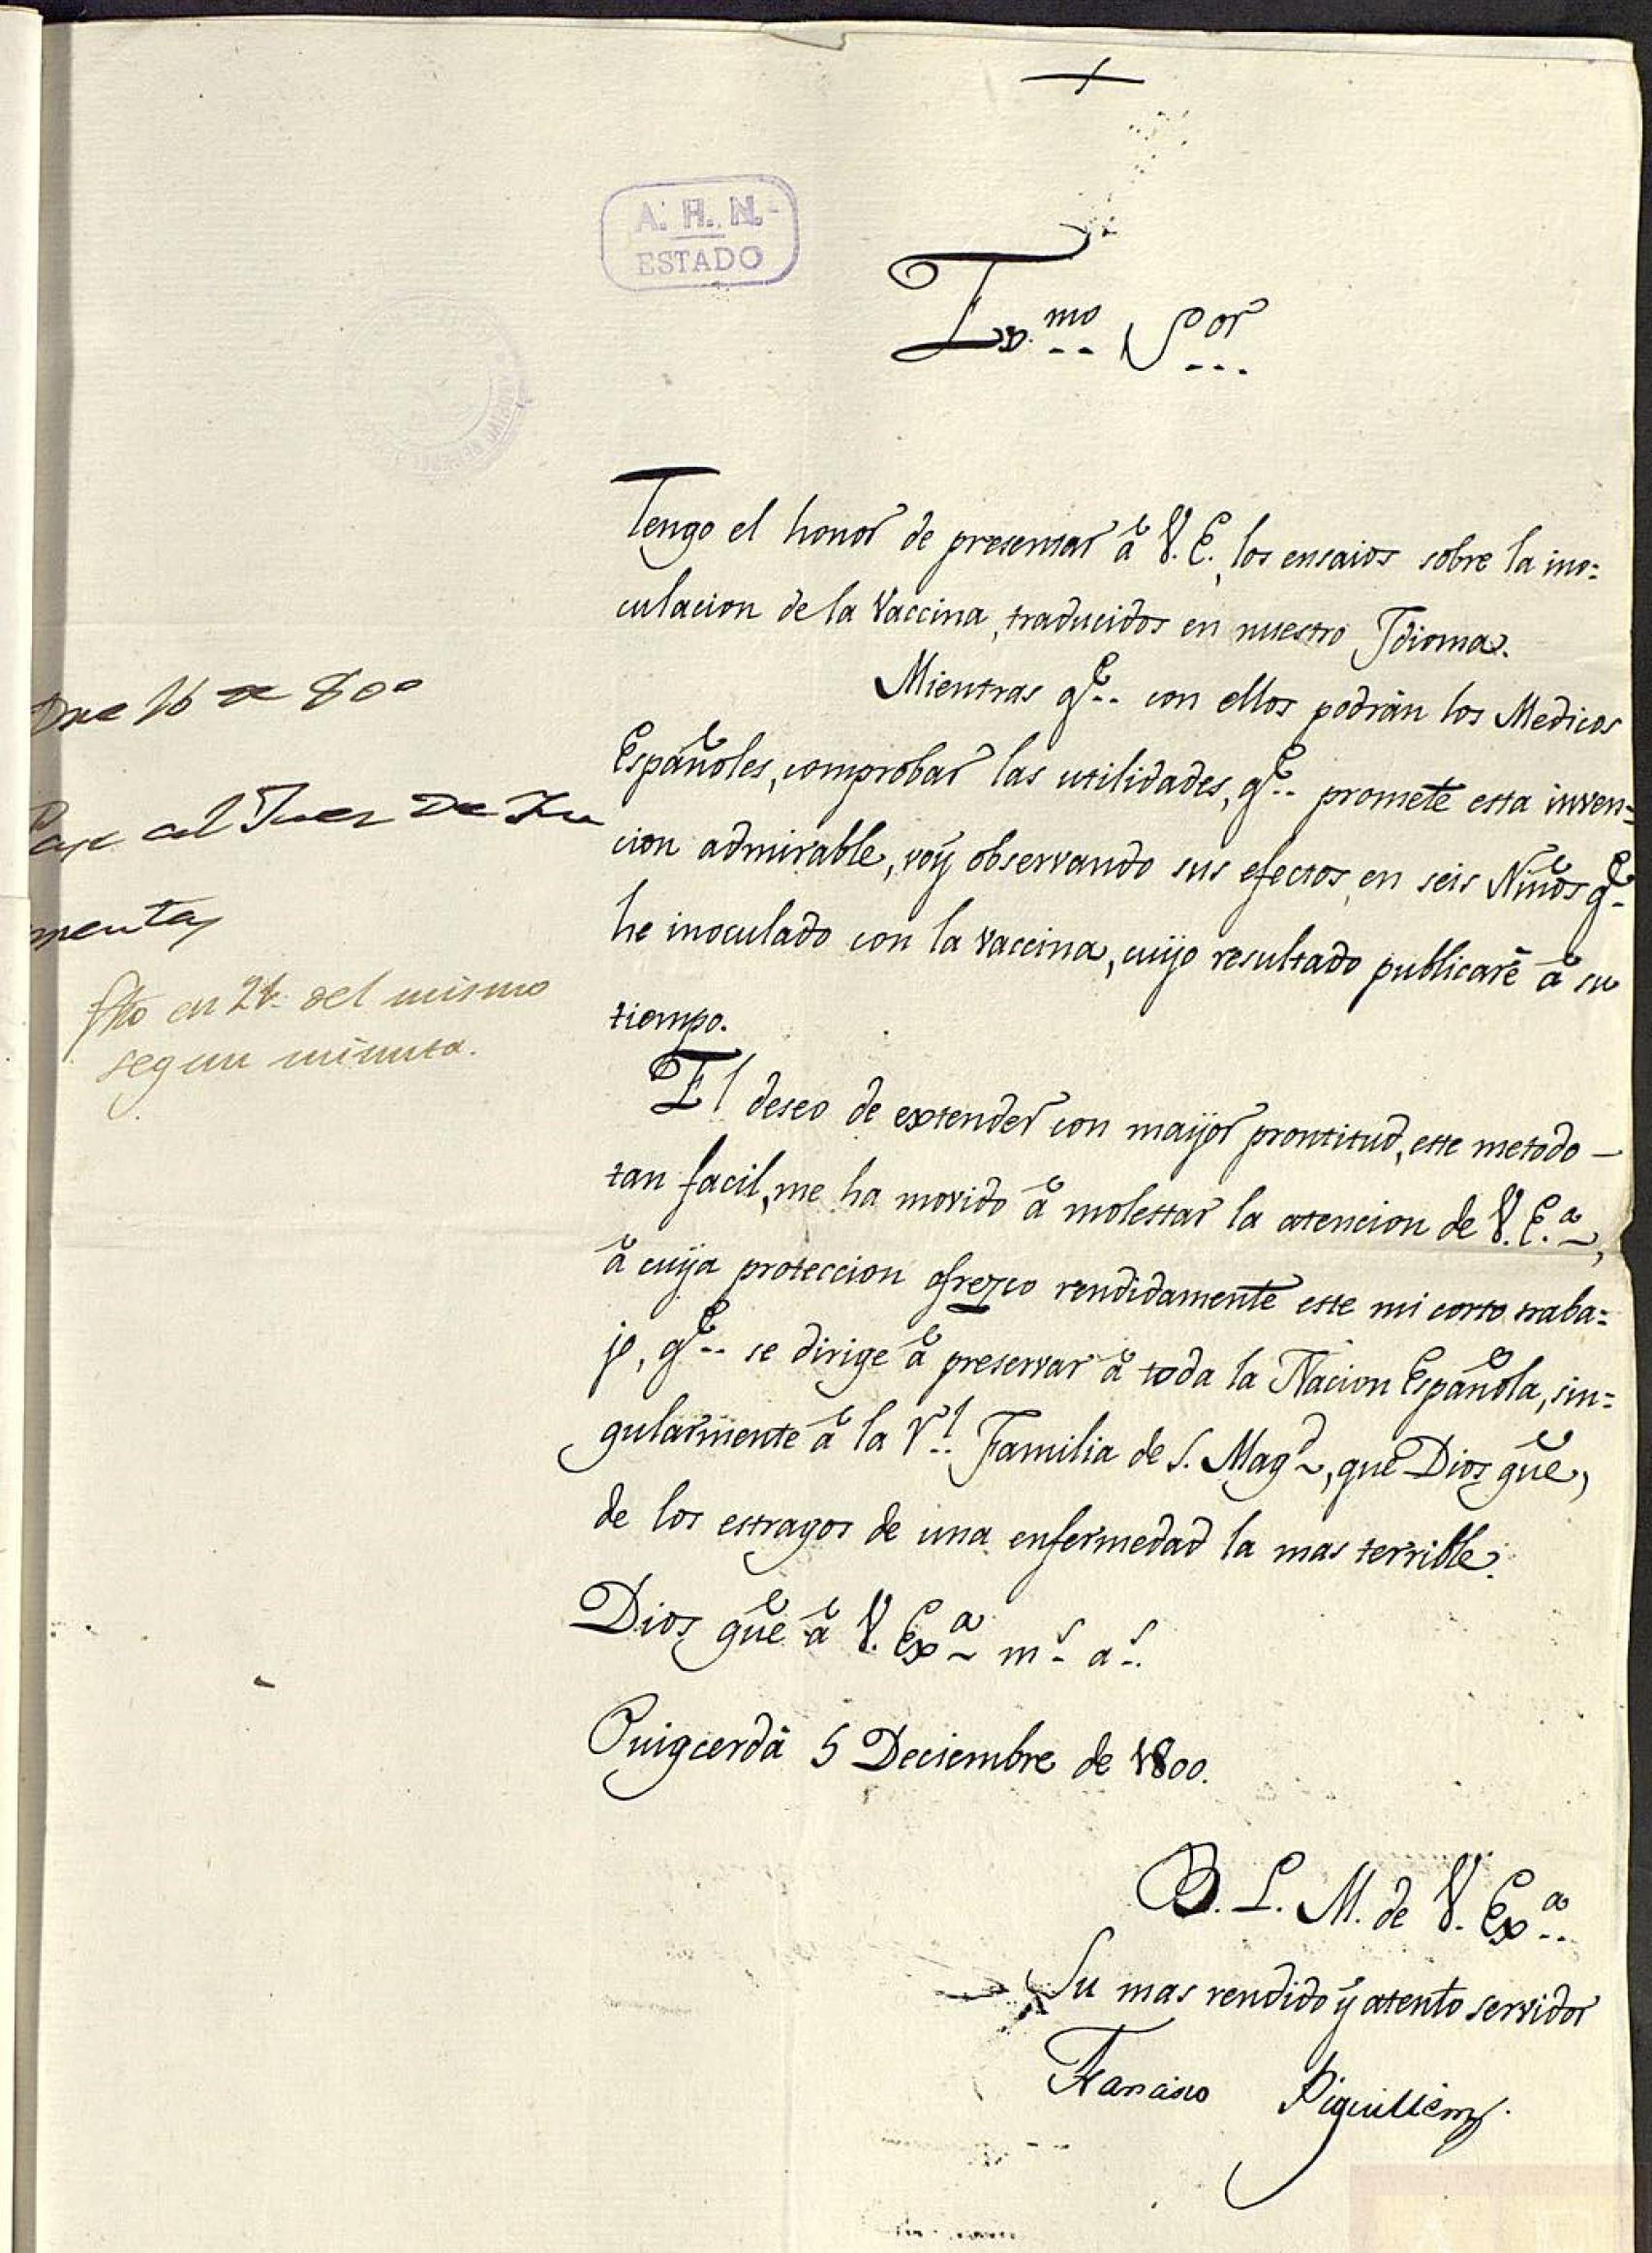 A. H. N.
ESTADO
Ex.mo S.or
Tengo el honor de presentar â V. E. los ensaios sobre la ino=
culacion de la Vaccina, traducidos en nuestro Idioma.
Mientras q.e con ellos podrân los Medicos
Españoles, comprobar las utilidades, q.e promete esta inven=
cion admirable, voÿ observando sus efectos, en seis Niños q.e
he inoculado con la vaccina, cuÿo resultado publicarê â su
tiempo.
El deseo de extender con maÿor prontitud, este metodo -
tan facil, me ha movido â molestar la atencion de V. E.a,
â cuÿa proteccion ofrezco rendidamente este mi corto traba=
jo, q.e se dirige â preservar â toda la Nacion Española, sin=
gularmente â la R.l Familia de S. Mag.d, que Dios gûe,
de los estragos de una enfermedad la mas terrible.
Dios gûe â V. Ex.a m.s a.s
Puigcerdâ 5 Deciembre de 1800.
B. L. M. de V. Ex.a
Su mas rendido ÿ atento servidor
Francisco Piguillem.
16 de 800
Pase al Juez de Im
prentas
fho en 21 del mismo
segun minuta.